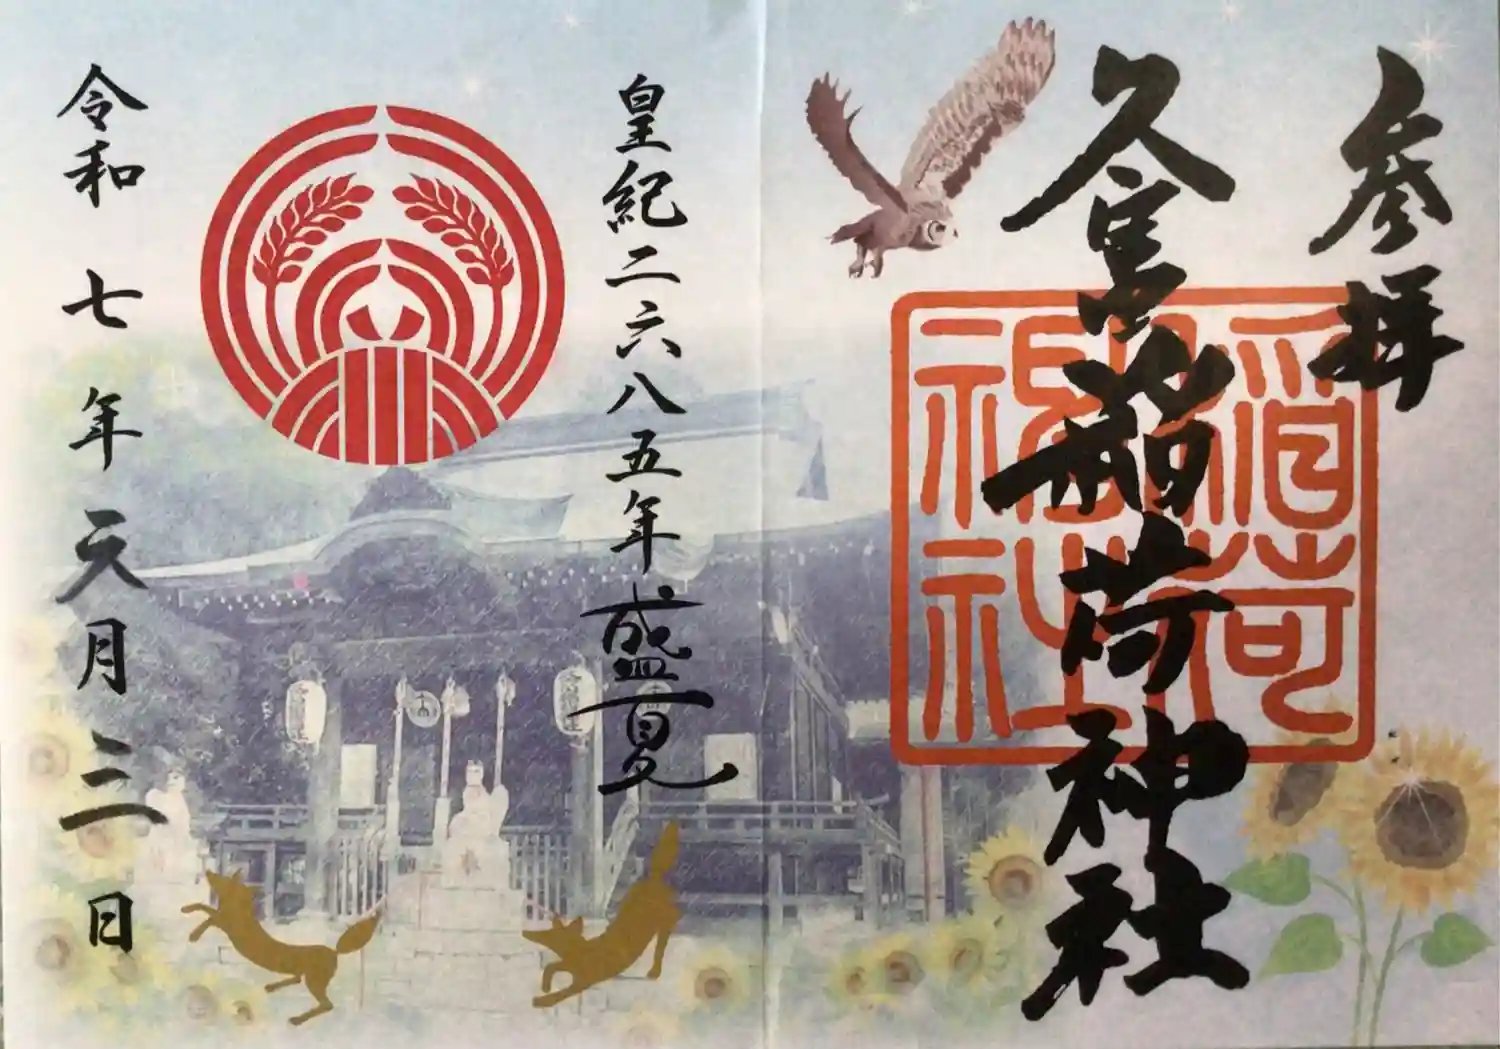 参拝
稲荷神社
稲荷
神社
皇紀二六八五年盛夏
令和七年 月 日